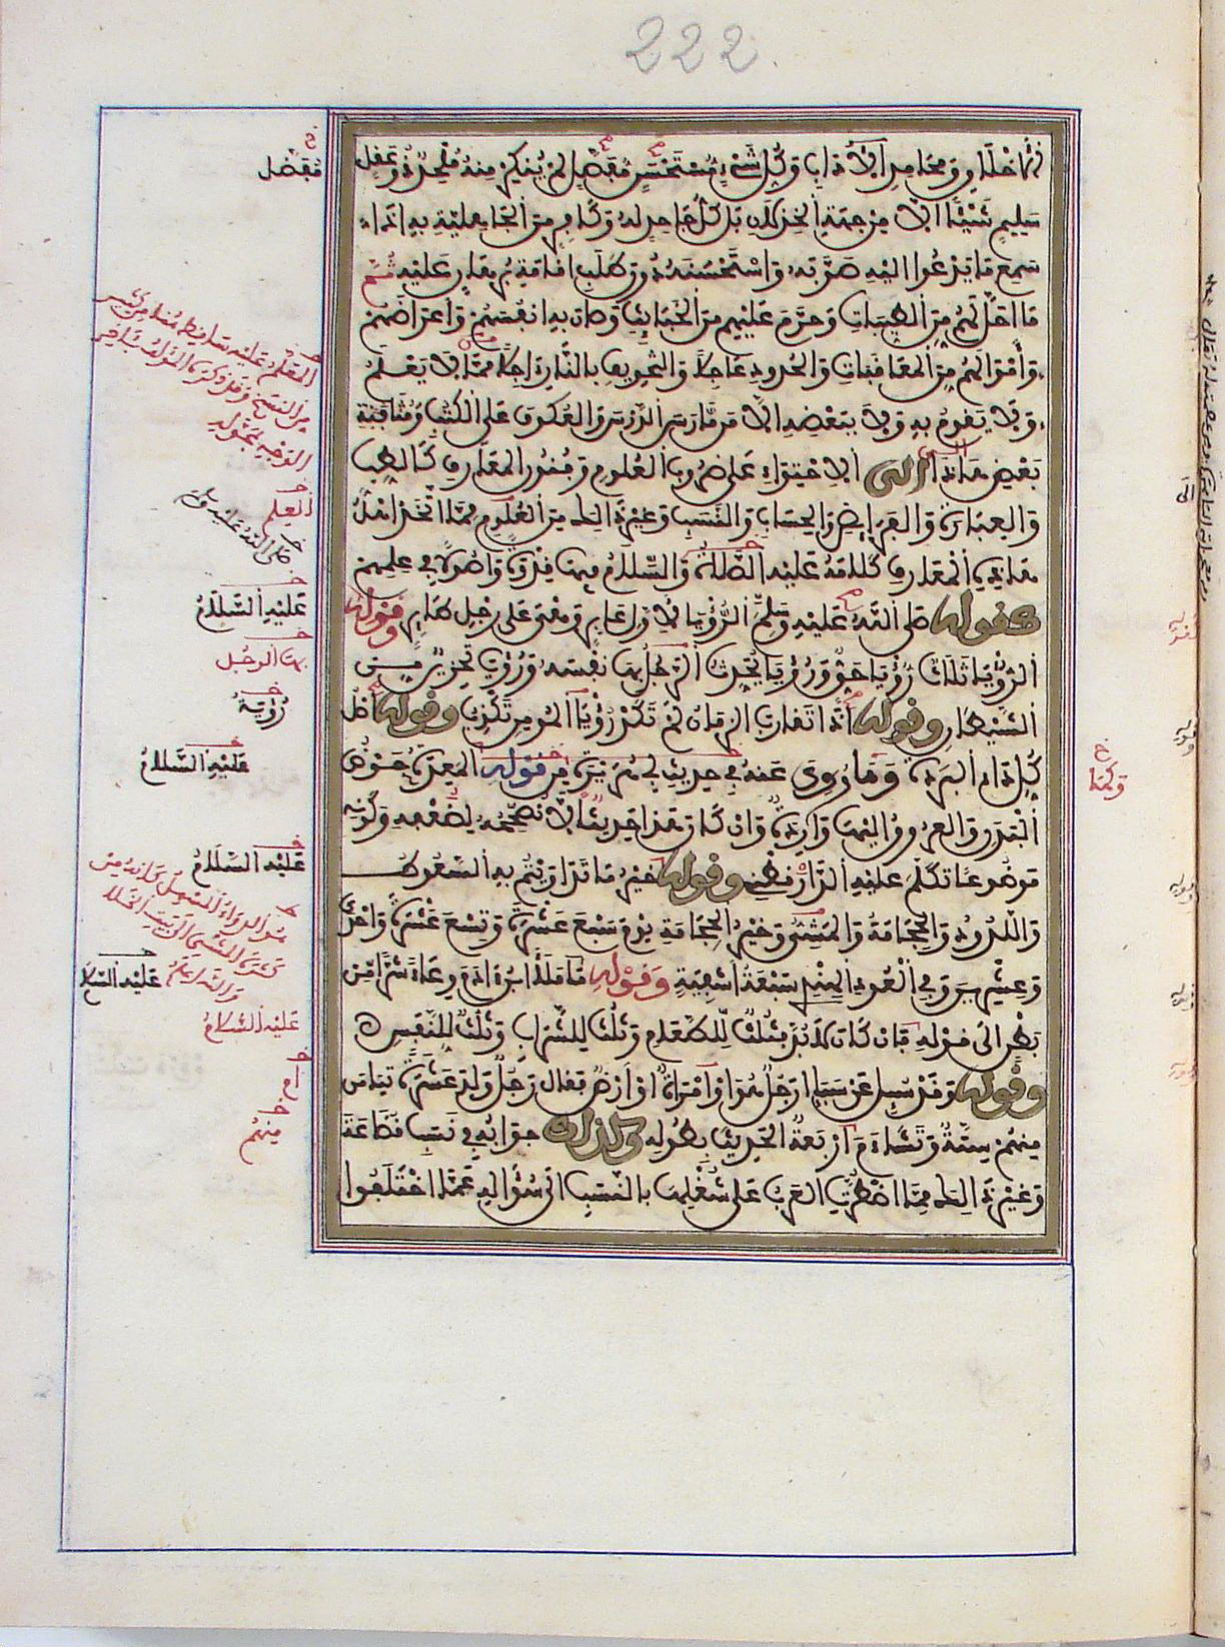 222
أخلاق ومحامد الآداب وكل شيء مستحسن مفضل لم ينكر منه ملحد ذو عقل
سليم شيئا إلا من جهة الخذلان بل كل جاحد له وكافر من الجاهلية به إذا
سمع ما يدعوا إليه صوبه واستحسنه دون طلب إقامة برهان عليه ثم
ما أحل لهم من الطيبات وحرم عليهم من الخبائث وصان به أنفسهم وأعراضهم
وأموالهم من المعاقبات والحدود عاجلا والتخويف بالنار آجلا مما لا يعلم
ولا يقوم به ولا ببعضه إلا من مارس الدرس والعكوف على الكتب ومثافنة
بعض هذا إلى الاحتواء على ضروب العلوم وفنون المعارف كالطب
والعبارة والفرائض والحساب والنسب وغير ذلك من العلوم مما اتخذ أهل
هذه المعارف كلامه عليه الصلاة والسلام فيها قدوة وأصولا في علمهم
كقوله صلى الله عليه وسلم الرؤيا لأول عابر وهي على رجل طائر وقوله
الرؤيا ثلاث رؤيا حق ورؤيا يحدث الرجل بها نفسه ورؤيا تحزين من
الشيطان وقوله إذا تقارب الزمان لم تكد رؤيا المومن تكذب وقوله أصل
كل داء البردة وما روي عنه في حديث أبي هريرة من قوله المعدة حوض
البدن والعروق إليها واردة وإن كان هذا حديثا لا نصححه لضعفه وكونه
موضوعا تكلم عليه الدارقطني وقوله خير ما تداويتم به السعوط
واللدود والحجامة والمشي وخير الحجامة يوم سبع عشرة وتسع عشرة وإحدى
وعشرين وفي العود الهندي سبعة أشفية وقوله ما ملأ ابن آدم وعاء شرا من
بطن إلى قوله فإن كان لا بد فثلث للطعام وثلث للشراب وثلث للنفس
وقوله وقد سيل عن سبأ أرجل هو أو امرأة أو أرض فقال رجل ولد عشرة تيامن
منهم ستة وتشاءم أربعة الحديث بطوله وكذلك جوابه في نسب قضاعة
وغير ذلك مما اضطرت العرب على شغلها بالنسب إلى سؤاله عما اختلفوا
مفضل
العلم
عليه السلام
بها الرجل
رؤية
عليه السلام
عليه السلام
عليه السلام
عليه السلام
أم
منهم